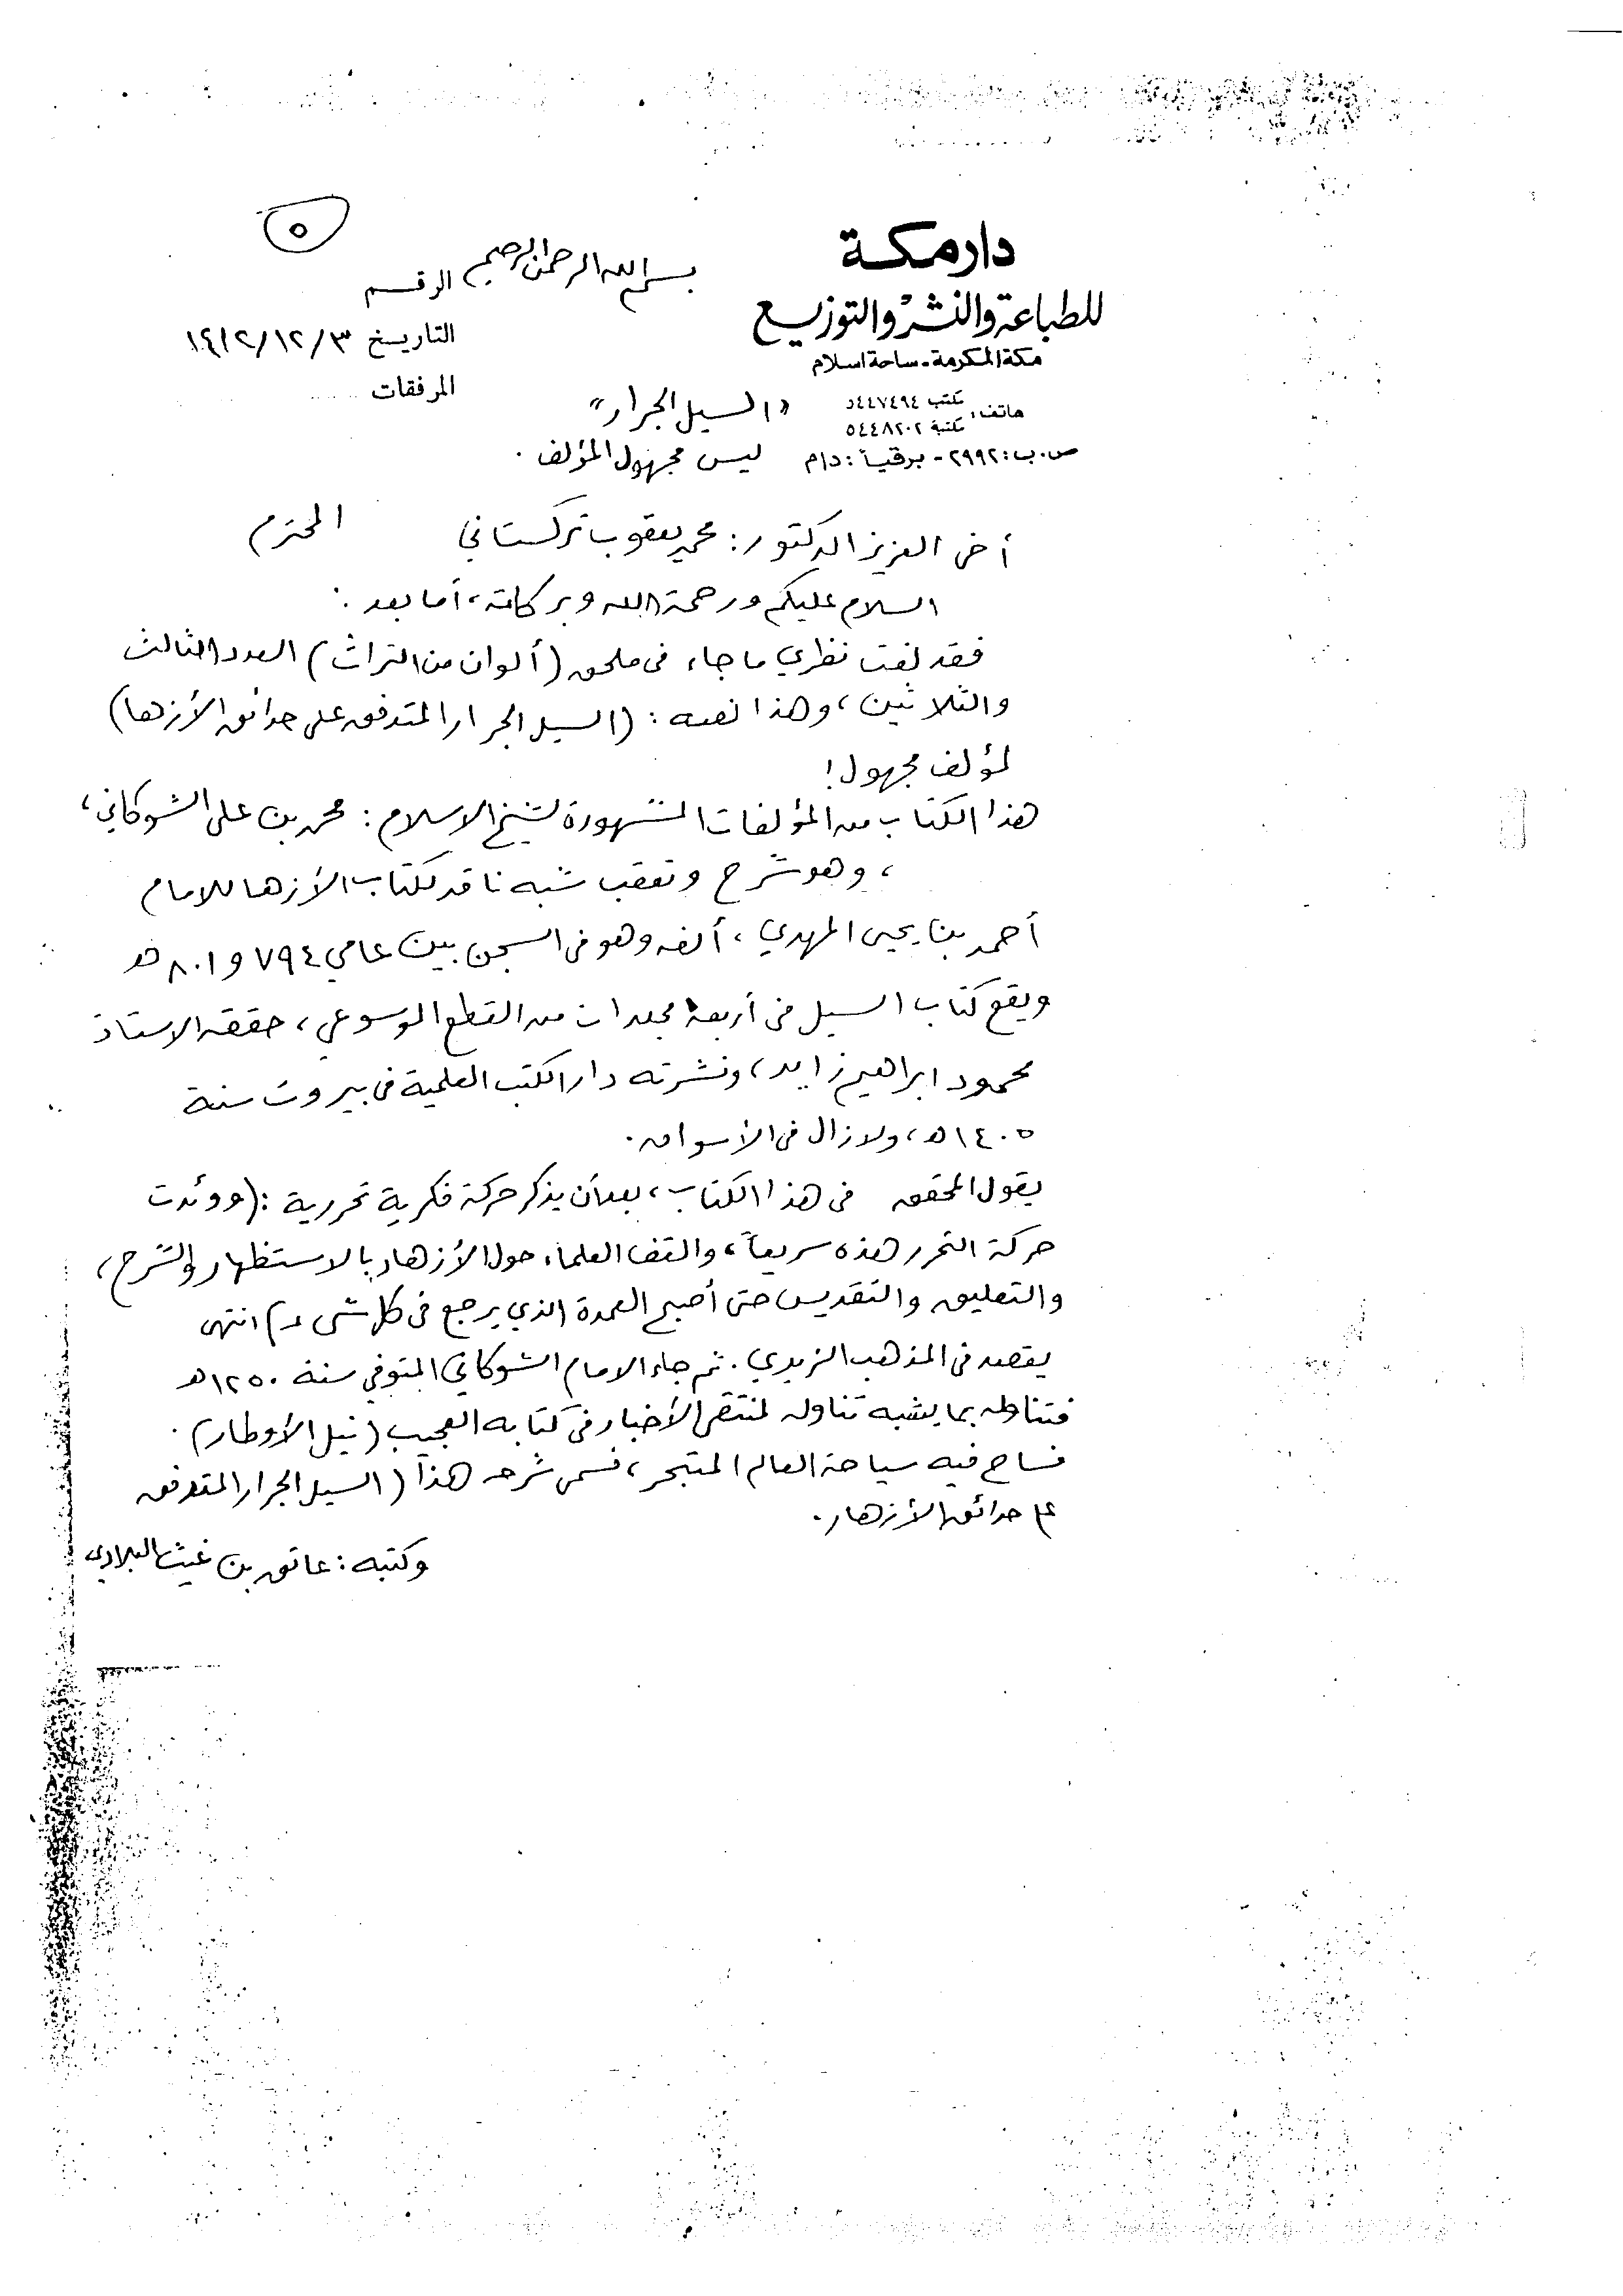 ٥
دار مكة
للطباعة والنشر والتوزيع
مكة المكرمة - ساحة اسلام
هاتف: مكتب ٥٤٤٧٤٩٤
مكتبة ٥٤٤٨٢٠٢
ص.ب: ٢٩٩٢ - برقياً: دام
بسم الله الرحمن الرحيم
الرقم
التاريخ ١٤١٢/١٢/٣
المرفقات
«السيل الجرار»
ليس مجهول المؤلف.
أخي العزيز الدكتور: محمد يعقوب تركستاني المحترم
السلام عليكم ورحمة الله وبركاته، أما بعد:
فقد لفت نظري ما جاء في ملحق (ألوان من التراث) العدد الثالث
والثلاثين، وهذا نصه: (السيل الجرار المتدفق على حدائق الأزهار)
لمؤلف مجهول!
هذا الكتاب من المؤلفات المشهورة لشيخ الاسلام: محمد بن علي الشوكاني،
، وهو شرح وتعقب شبه ناقد لكتاب الأزهار للامام
أحمد بن يحيى المهدي، ألفه وهو في السجن بين عامي ٧٩٤ و ٨٠١ هـ
ويقع كتاب السيل في أربعة مجلدات من القطع الموسوعي، حققه الاستاذ
محمود ابراهيم زايد، ونشرته دار الكتب العلمية في بيروت سنة
١٤٠٥ هـ، ولازال في الأسواق.
يقول المحقق في هذا الكتاب، بعد أن يذكر حركة فكرية تحررية: (ووئدت
حركة التحرر هذه سريعاً، والتف العلماء حول الأزهار بالاستظهار والشرح،
والتعليق والتقديس حتى أصبح العمدة الذي يرجع في كل شيء) انتهى
يقصد في المذهب الزيدي. ثم جاء الامام الشوكاني المتوفي سنة ١٢٥٠ هـ
فتناوله بما يشبه تناوله لمنتقى الأخبار في كتابه العجيب (نيل الأوطار).
فساح فيه سياحة العالم المتبحر، فسمى شرحه هذا (السيل الجرار المتدفق
على حدائق الأزهار.
وكتبه: عاتق بن غيث البلادي